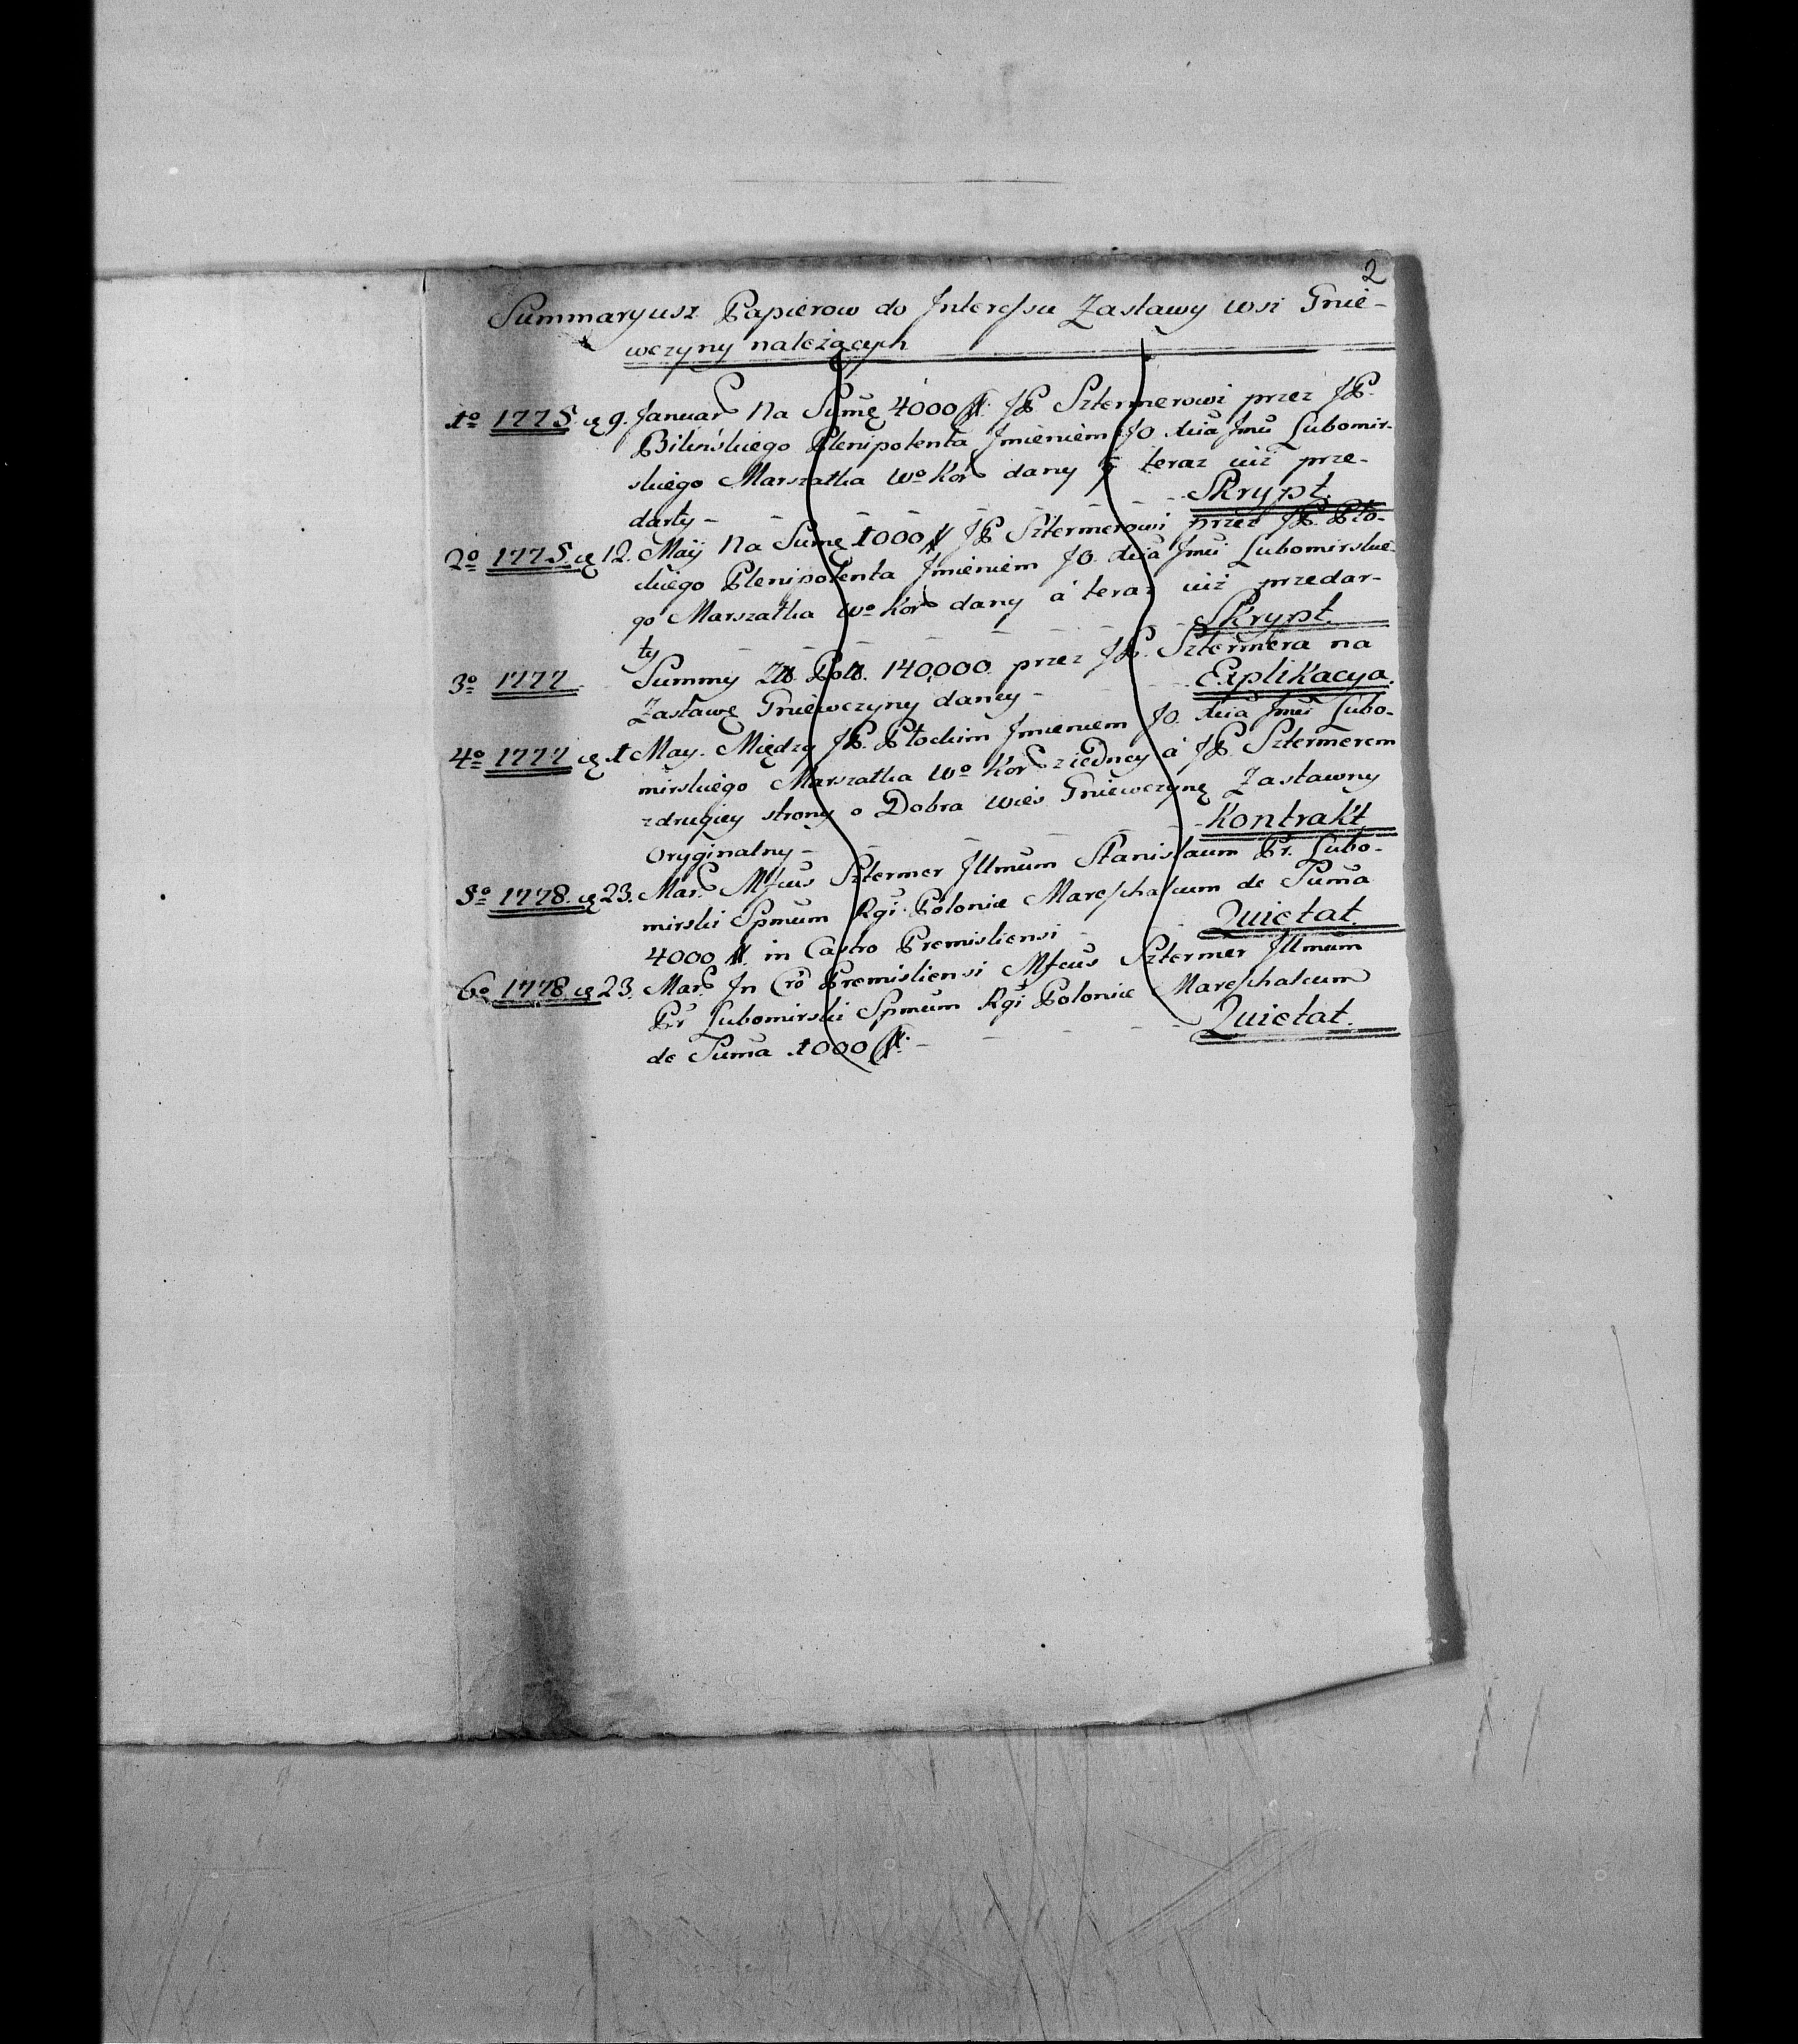 2
Summaryusz Papierow do Interessu Zastawy wsi Gnie-
wczyny należących
1o 1775. 9. Januar Na Sumę 4000 JP. Sztermerowi przez JP.
Bilińskiego Plenipotenta Jmieniem JO. Xcia Jmci Lubomir-
skiego Marszałka Wo Kor dany á teraz iuż prze-
darty - - - - - - Skrypt.
2o 1775. 12. Maij Na Sumę 1000 JP Sztermerowi przez JP. Pło-
ckiego Plenipotenta Jmieniem JO. Xcia Jmci Lubomirskie-
go Marszałka Wo Kor dany á teraz iuż przedar-
ty - - - - - - Skrypt.
3o 1777 Summy Zł. Pol. 140,000. przez JP. Sztermera na
Zastawę Gniewczyny daney - - - Explikacya.
4o 1777 1 May. Między JP. Płockim Jmieniem JO. Xcia Jmci Lubo-
mirskiego Marszałka Wo Kor ziedney á JP. Sztermerem
zdrugiey strony o Dobra Wieś Gniewczynę Zastawny
Oryginalny - - - - - Kontrakt
5o 1778. 23. Mar. Mfcus Sztermer Jllmum Stanislaum Pr. Lubo-
mirski Spmum Rgi Poloniæ Mareschalcum de Suma
4000 in Castro Premisliensi - - Quietat.
6o 1778. 23. Mar. Jn Cro Premisliensi Mfcus Sztermer Jllmum
Pr Lubomirski Spmum Rgi Poloniæ Mareschalcum
de Suma 1000 - - - - - Quietat.